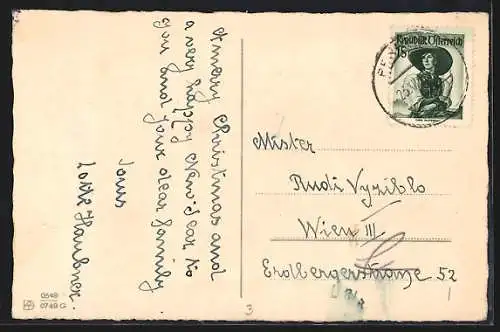 A merry Christmas and
a very happy New-Year to
you and your dear family
Yours
Lotte
Mister
Rudi Vyziblo
Wien III
Erdbergerstrasse 52
REPUBLIK ÖSTERREICH
0549
0749 G
3